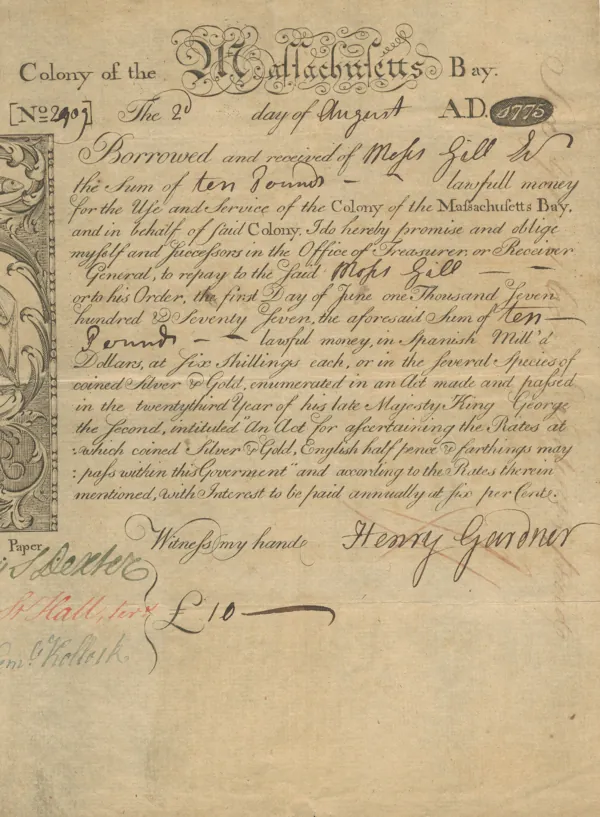 Colony of the Massachusetts Bay.
[No 2909] The 2d day of August A.D. 1775
Borrowed and received of Moses Gill Er
the Sum of ten Pounds — — lawfull money
for the Use and Service of the Colony of the Massachusetts Bay,
and in behalf of said Colony, I do hereby promise and oblige
myself and Successors in the Office of Treasurer, or Receiver
General, to repay to the said Moses Gill — —
or to his Order, the first Day of June one Thousand Seven
hundred & Seventy Seven, the aforesaid Sum of ten —
Pounds — — lawful money, in Spanish Mill'd
Dollars, at Six Shillings each, or in the several Species of
coined Silver & Gold, enumerated in an Act made and passed
in the twentythird Year of his late Majesty King George
the Second, intituled "An Act for ascertaining the Rates at
which coined Silver & Gold, English half pence & farthings may
: pass within this Goverment" and according to the Rates therein
mentioned, with Interest to be paid annually at six per Cent.
Paper Witness my hand Henry Gardner
S Dexter
St Hall, ters £10
Kollock